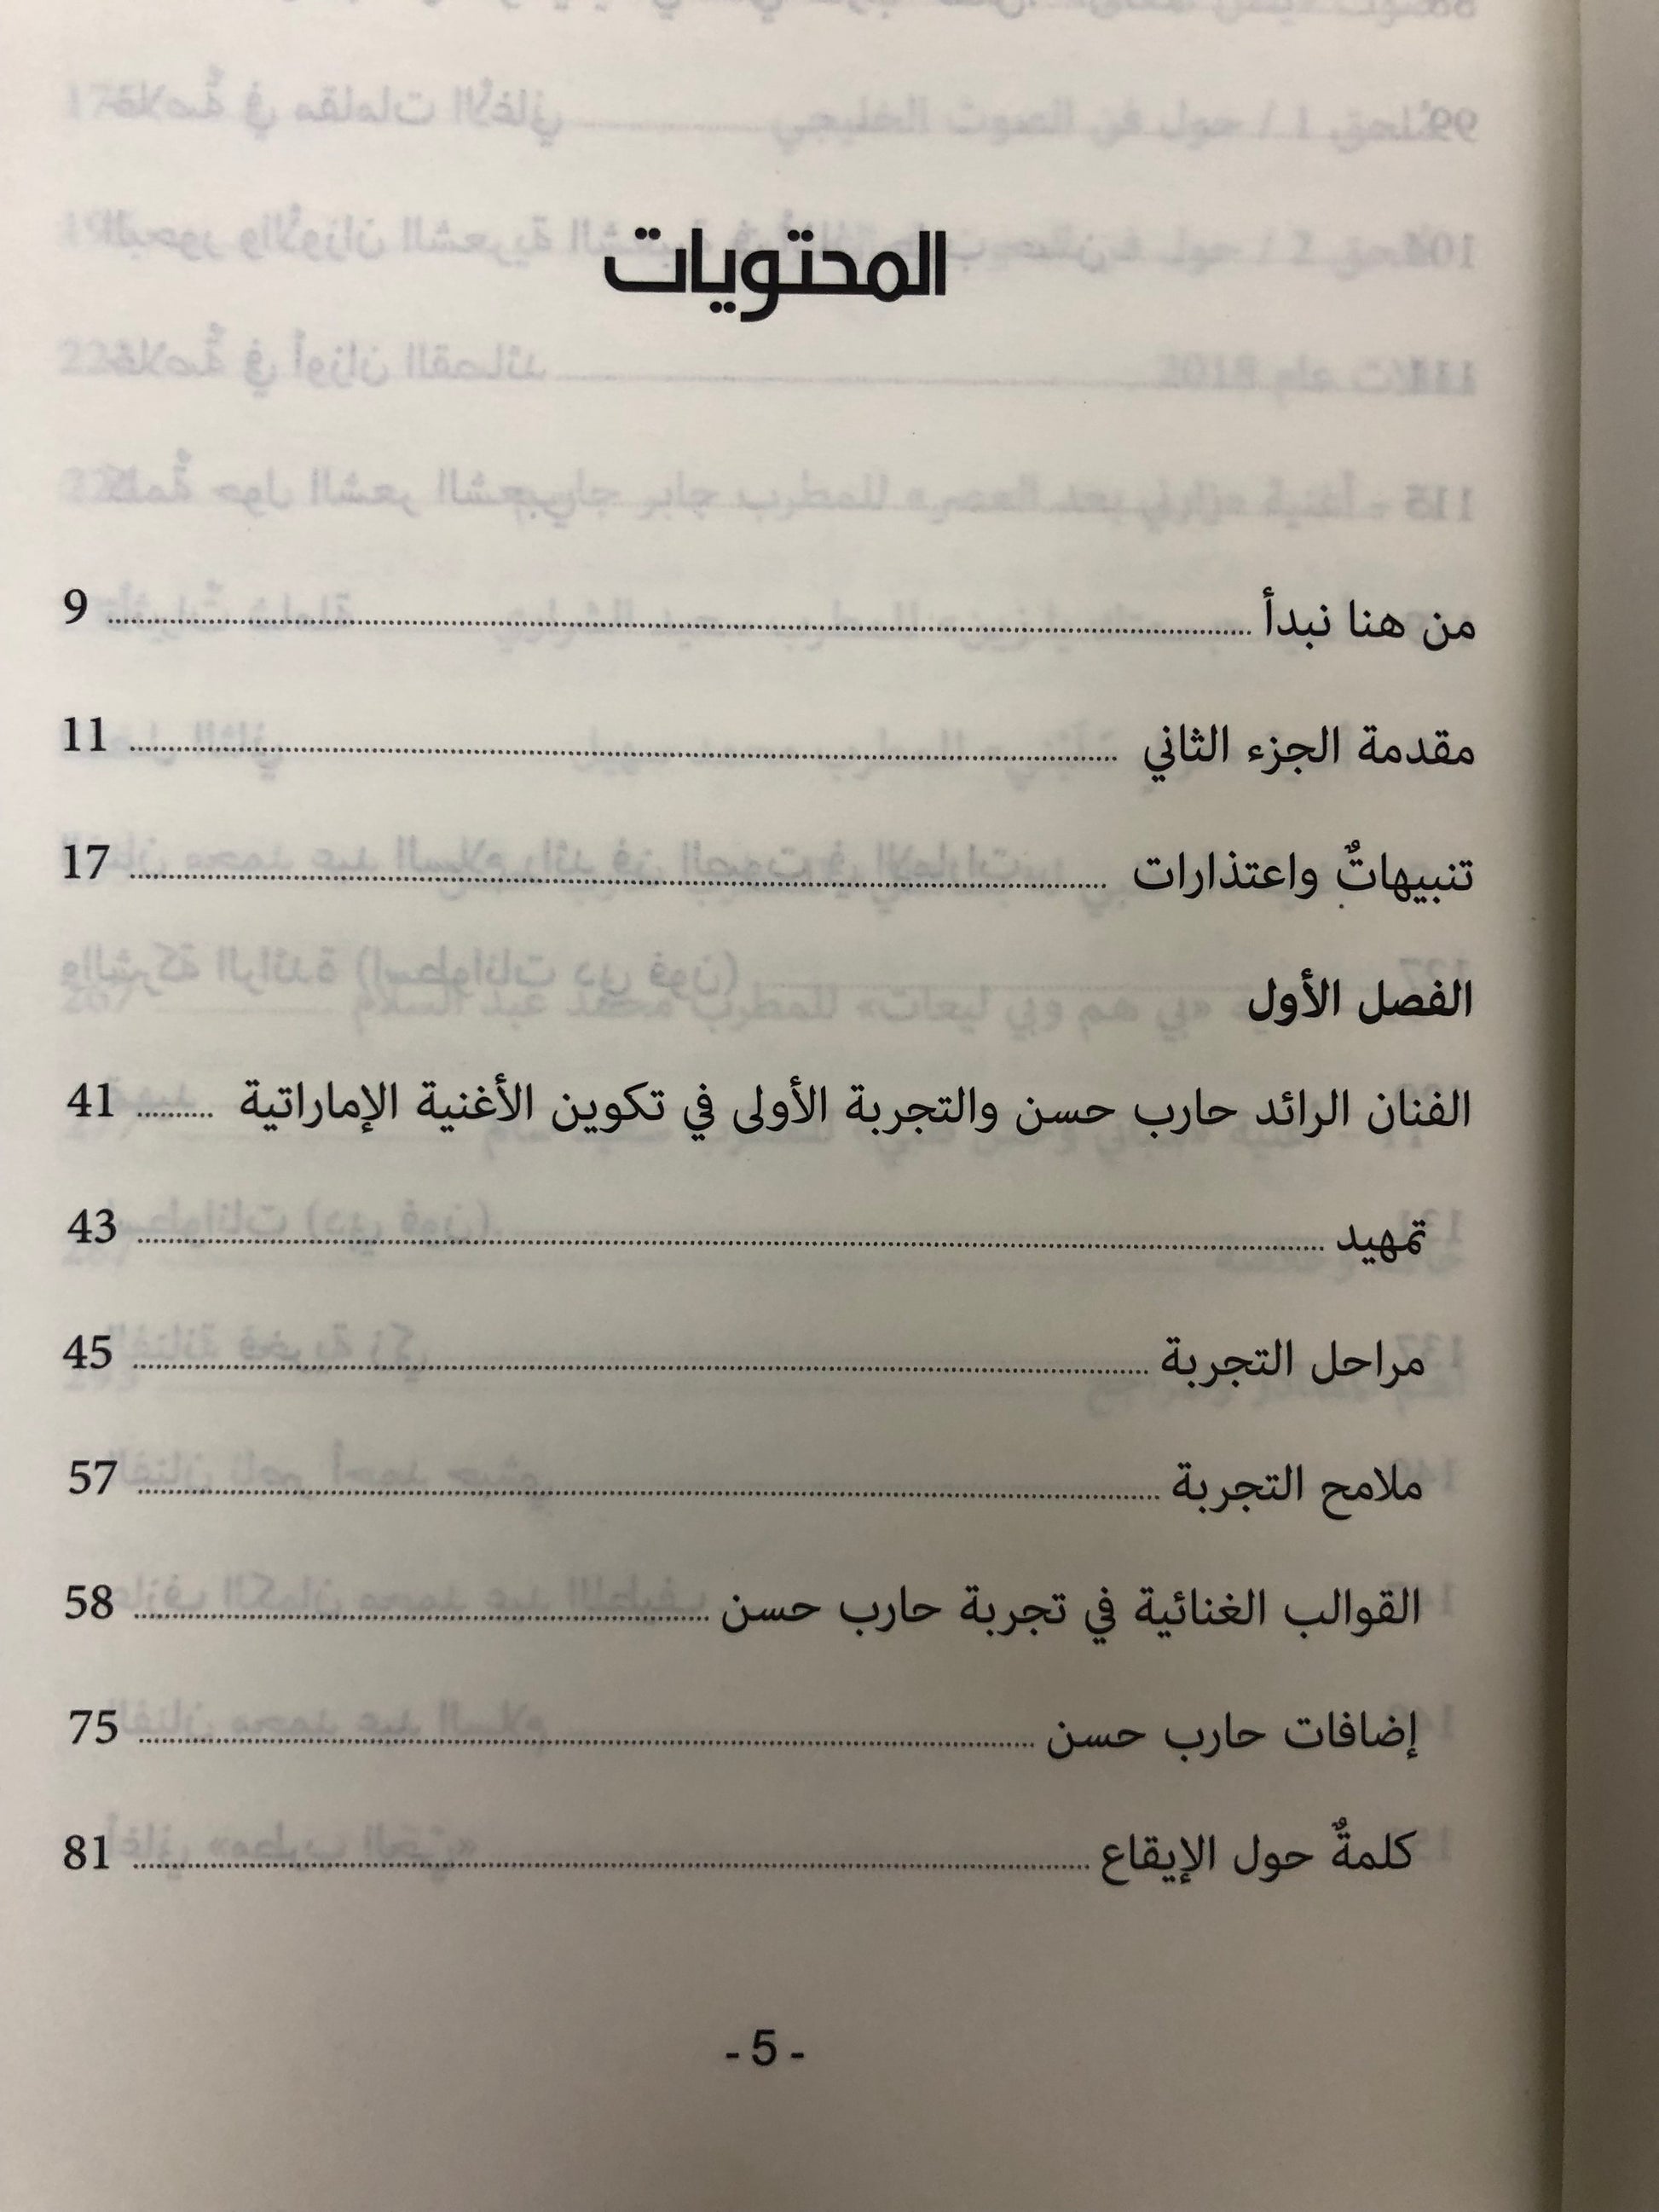 المحتويات
من هنا نبدأ ........ 9
مقدمة الجزء الثاني ........ 11
تنبيهاتٌ واعتذارات ........ 17
الفصل الأول
الفنان الرائد حارب حسن والتجربة الأولى في تكوين الأغنية الإماراتية ........ 41
تمهيد ........ 43
مراحل التجربة ........ 45
ملامح التجربة ........ 57
القوالب الغنائية في تجربة حارب حسن ........ 58
إضافات حارب حسن ........ 75
كلمةٌ حول الإيقاع ........ 81
- 5 -